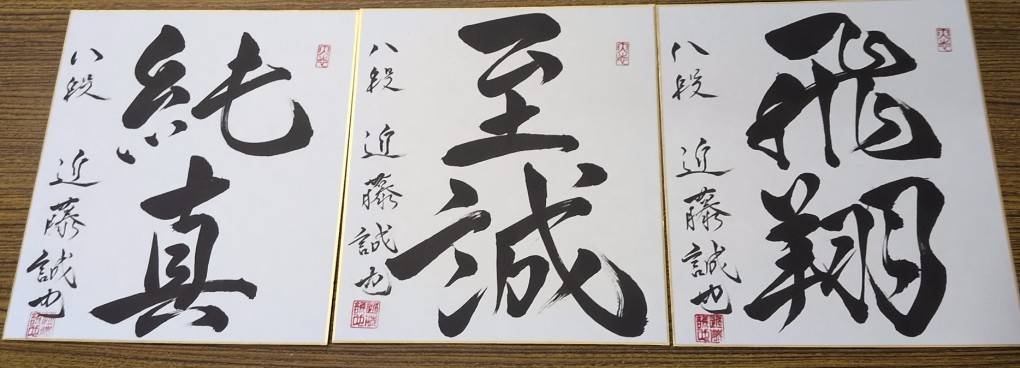 飛翔
八段 近藤誠也
至誠
八段 近藤誠也
純真
八段 近藤誠也